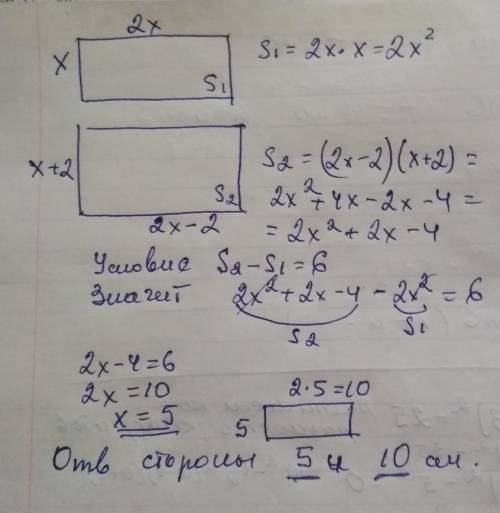 2x
x
S₁
S₁ = 2x·x = 2x²
x+2
S₂
2x−2
S₂ = (2x−2)(x+2) =
2x² + 4x − 2x − 4 =
= 2x² + 2x − 4
Условие S₂ − S₁ = 6
Значит 2x² + 2x − 4 − 2x² = 6
S₂ S₁
2x − 4 = 6
2x = 10
x = 5
2·5 = 10
5
Отв стороны 5 и 10 см.